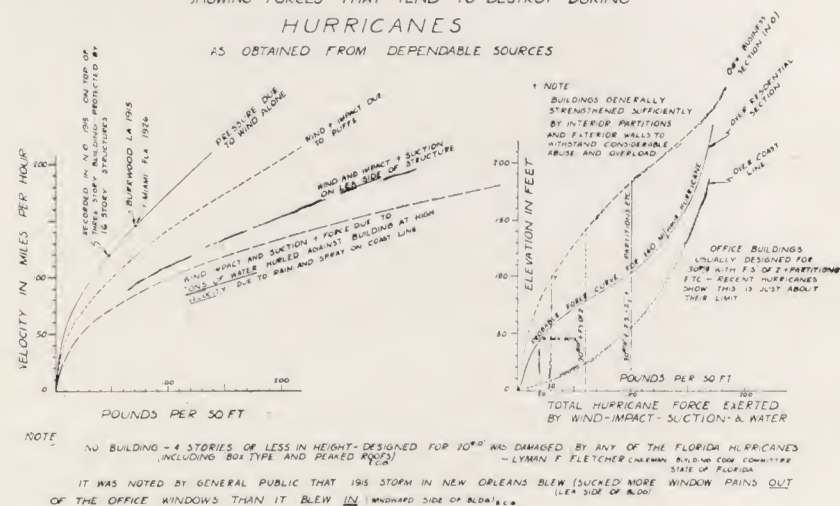 SHOWING FORCES THAT TEND TO DESTROY DURING
HURRICANES
AS OBTAINED FROM DEPENDABLE SOURCES
RECORDED IN N.O. 1915 ON TOP OF
THREE STORY BUILDING - PROTECTED BY
16 STORY STRUCTURES
BURRWOOD LA 1915
MIAMI FLA 1926
PRESSURE DUE
TO WIND ALONE
WIND + IMPACT DUE
TO PUFFS
WIND AND IMPACT + SUCTION
ON LEA SIDE OF STRUCTURE
WIND IMPACT AND SUCTION + FORCE DUE TO
TONS OF WATER HURLED AGAINST BUILDING AT HIGH
VELOCITY DUE TO RAIN AND SPRAY ON COAST LINE
VELOCITY IN MILES PER HOUR
100
50
0
100
200
POUNDS PER SQ FT
NOTE
BUILDINGS GENERALLY
STRENGTHENED SUFFICIENTLY
BY INTERIOR PARTITIONS
AND EXTERIOR WALLS TO
WITHSTAND CONSIDERABLE
ABUSE AND OVERLOAD
OVER BUSINESS
SECTION (N.O.)
OVER RESIDENTIAL
SECTION
OVER COAST
LINE
ELEVATION IN FEET
200
150
100
50
0
PROBABLE FORCE CURVE FOR 140 MI/HR HURRICANE
PARTITIONS ETC
OFFICE BUILDINGS
USUALLY DESIGNED FOR
30#/□' WITH F S OF 2 + PARTITIONS
ETC - RECENT HURRICANES
SHOW THIS IS JUST ABOUT
THEIR LIMIT
POUNDS PER SQ FT
TOTAL HURRICANE FORCE EXERTED
BY WIND-IMPACT-SUCTION-& WATER
NOTE
NO BUILDING - 4 STORIES OR LESS IN HEIGHT - DESIGNED FOR 20#/□' WAS DAMAGED BY ANY OF THE FLORIDA HURRICANES
(INCLUDING BOX TYPE AND PEAKED ROOFS)
- LYMAN F FLETCHER CHAIRMAN BUILDING CODE COMMITTEE
STATE OF FLORIDA
IT WAS NOTED BY GENERAL PUBLIC THAT 1915 STORM IN NEW ORLEANS BLEW (SUCKED) MORE WINDOW PAINS OUT
(LEA SIDE OF BLDG)
OF THE OFFICE WINDOWS THAN IT BLEW IN (WINDWARD SIDE OF BLDG)